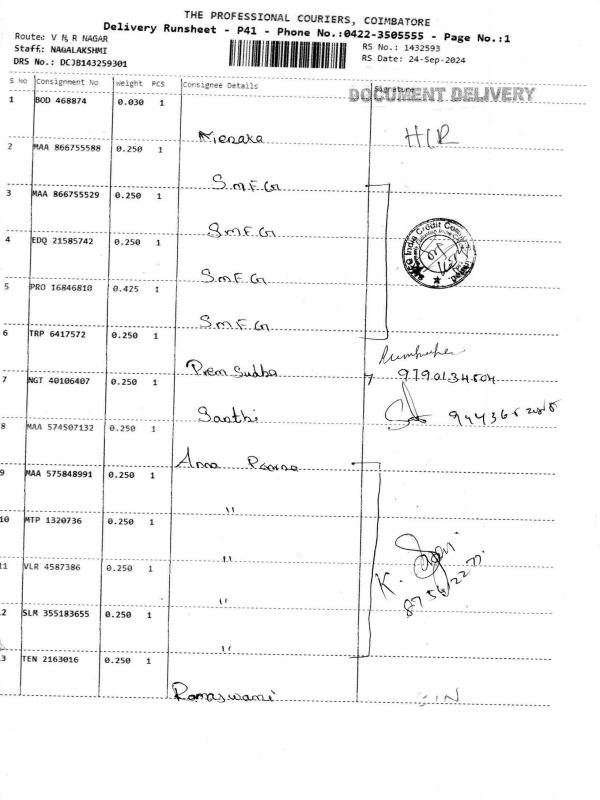 THE PROFESSIONAL COURIERS, COIMBATORE
Delivery Runsheet - P41 - Phone No.:0422-3505555 - Page No.:1
Route: V N R NAGAR
RS No.: 1432593
Staff.: NAGALAKSHMI
RS Date: 24-Sep-2024
DRS No.: DCJB143259301
S No Consignment No Weight PCS Consignee Details Signature
DOCUMENT DELIVERY
1 BOD 468874 0.030 1
HIR
2 MAA 866755588 0.250 1
S.M.F.G
3 MAA 866755529 0.250 1
S.M.F.G
4 EDQ 21585742 0.250 1
India Credit
S.M.F.G
5 PRO 16846810 0.425 1
S.M.F.G
6 TRP 6417572 0.250 1
Prem Sudha
9790134504
7 NGT 40106407 0.250 1
Santhi
8 MAA 574507132 0.250 1
Anna Poorna
9 MAA 575848991 0.250 1
"
10 MTP 1320736 0.250 1
"
11 VLR 4587386 0.250 1
K.
"
12 SLM 355183655 0.250 1
"
13 TEN 2163016 0.250 1
Ramaswami